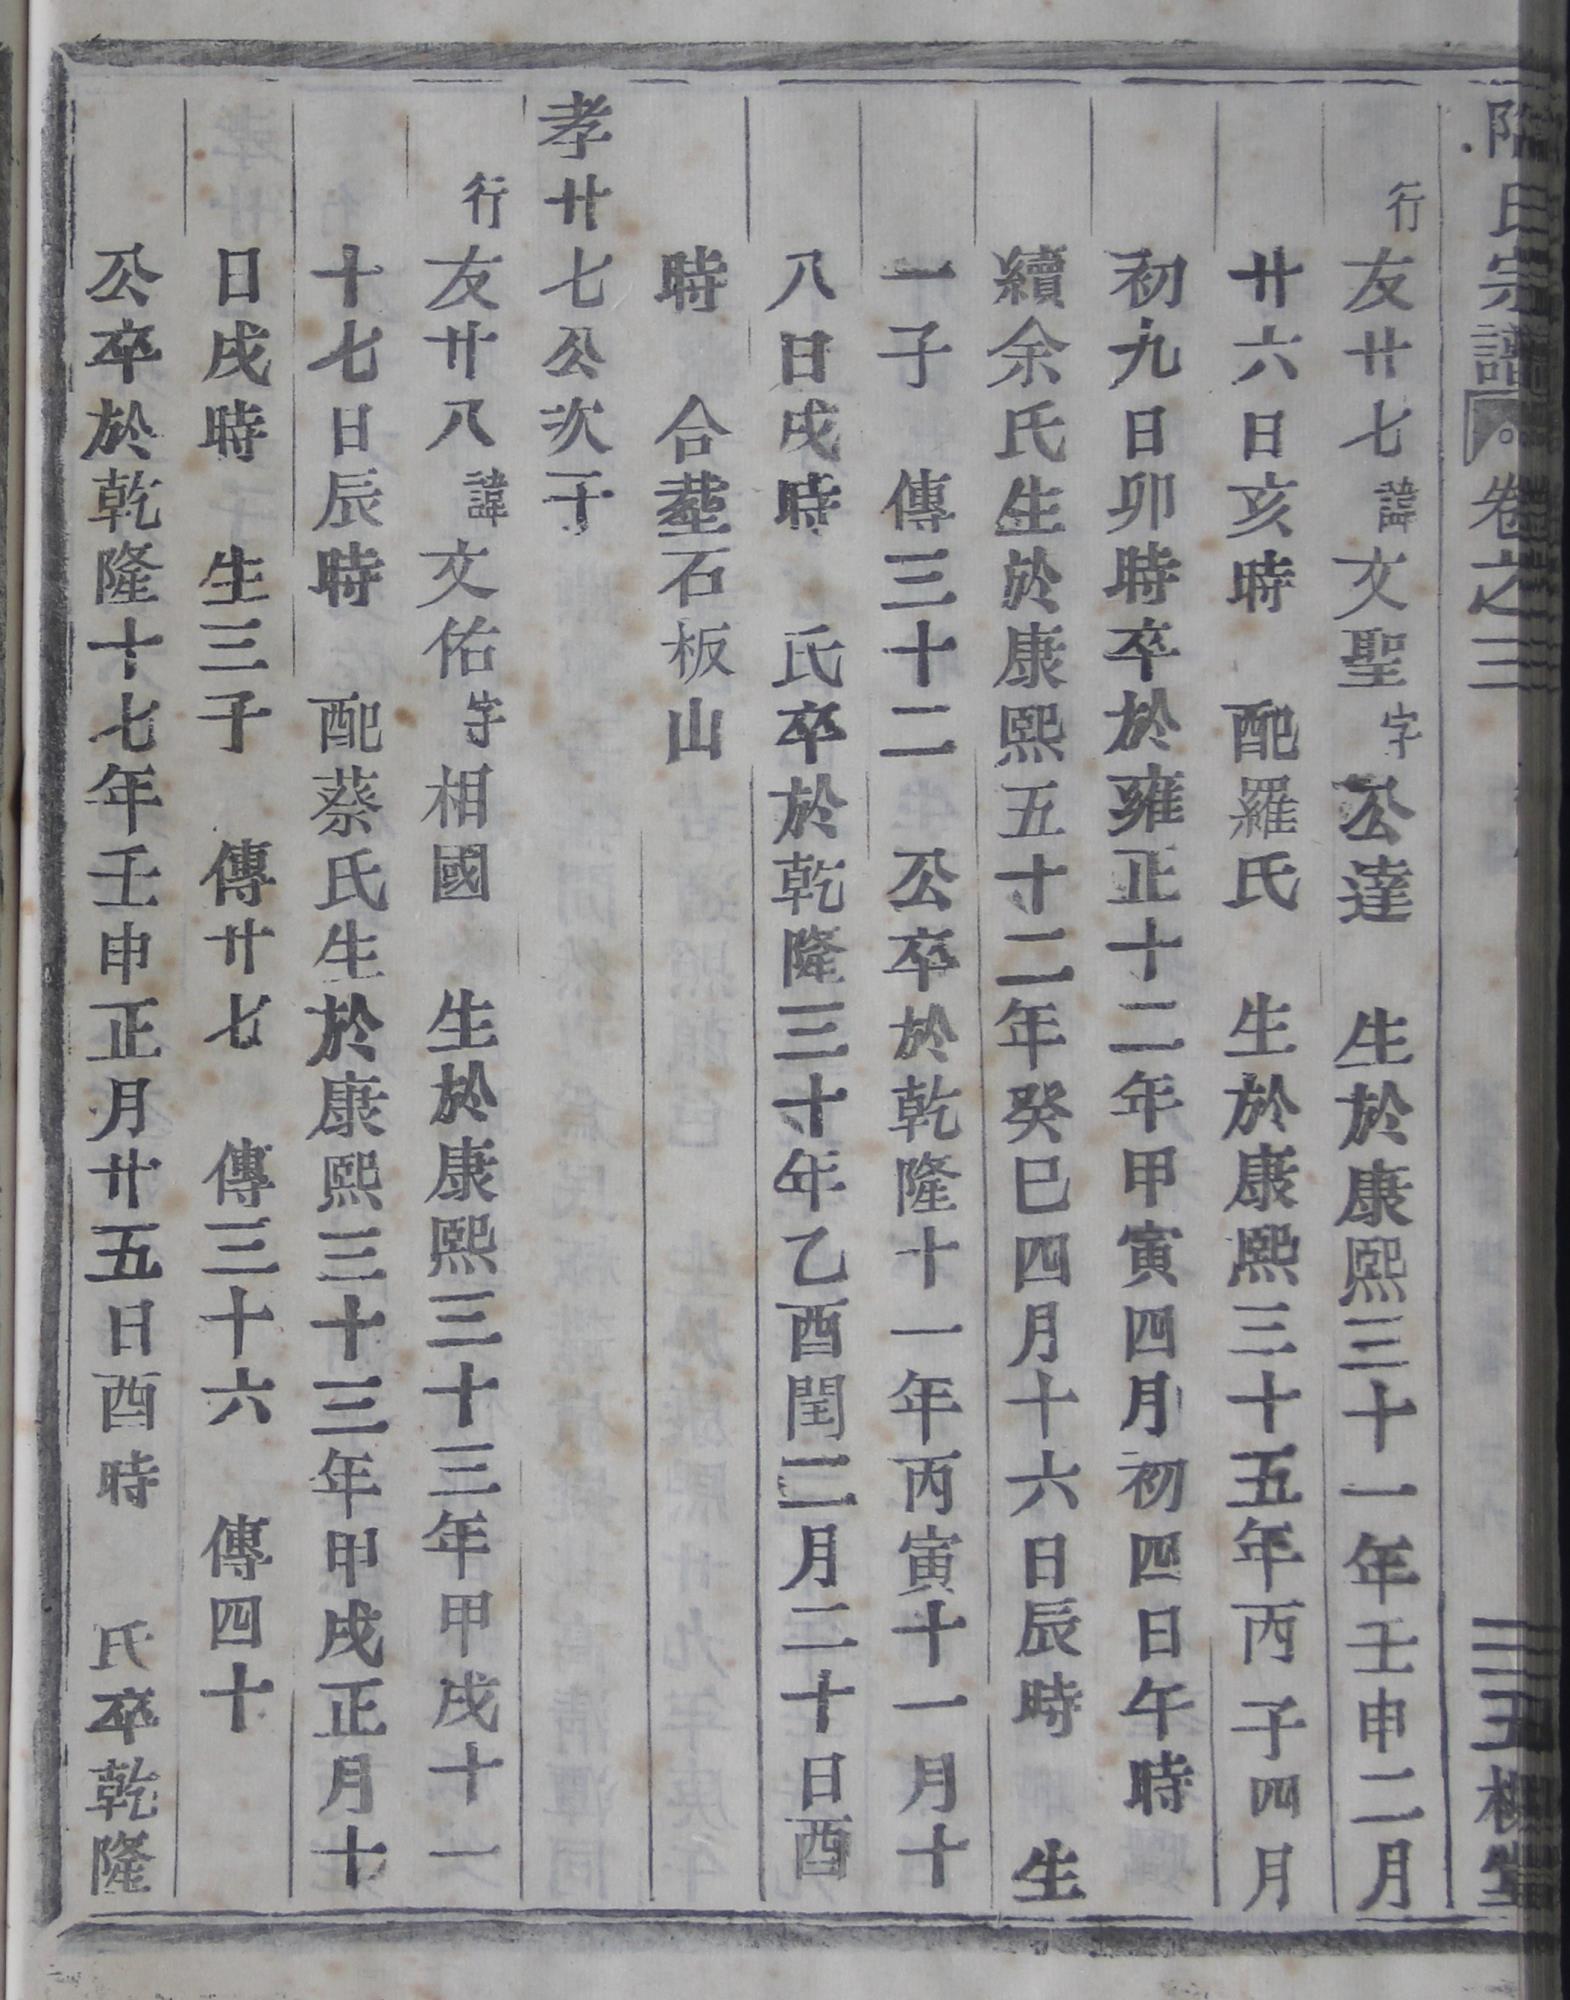 氏宗譜 卷之三
行友廿七諱文聖字公達 生於康熙三十一年壬申二月
廿六日亥時 配羅氏 生於康熙三十五年丙子四月
初九日卯時卒於雍正十二年甲寅四月初四日午時
續余氏生於康熙五十二年癸巳四月十六日辰時 生
一子 傳三十二 公卒於乾隆十一年丙寅十一月十
八日戌時 氏卒於乾隆三十年乙酉閏二月二十日酉
時 合塟石板山
孝廿七公次子
行友廿八諱文佑字相國 生於康熙三十三年甲戌十一
十七日辰時 配蔡氏生於康熙三十三年甲戌正月十
日戌時 生三子 傳廿七 傳三十六 傳四十
公卒於乾隆十七年壬申正月廿五日酉時 氏卒乾隆